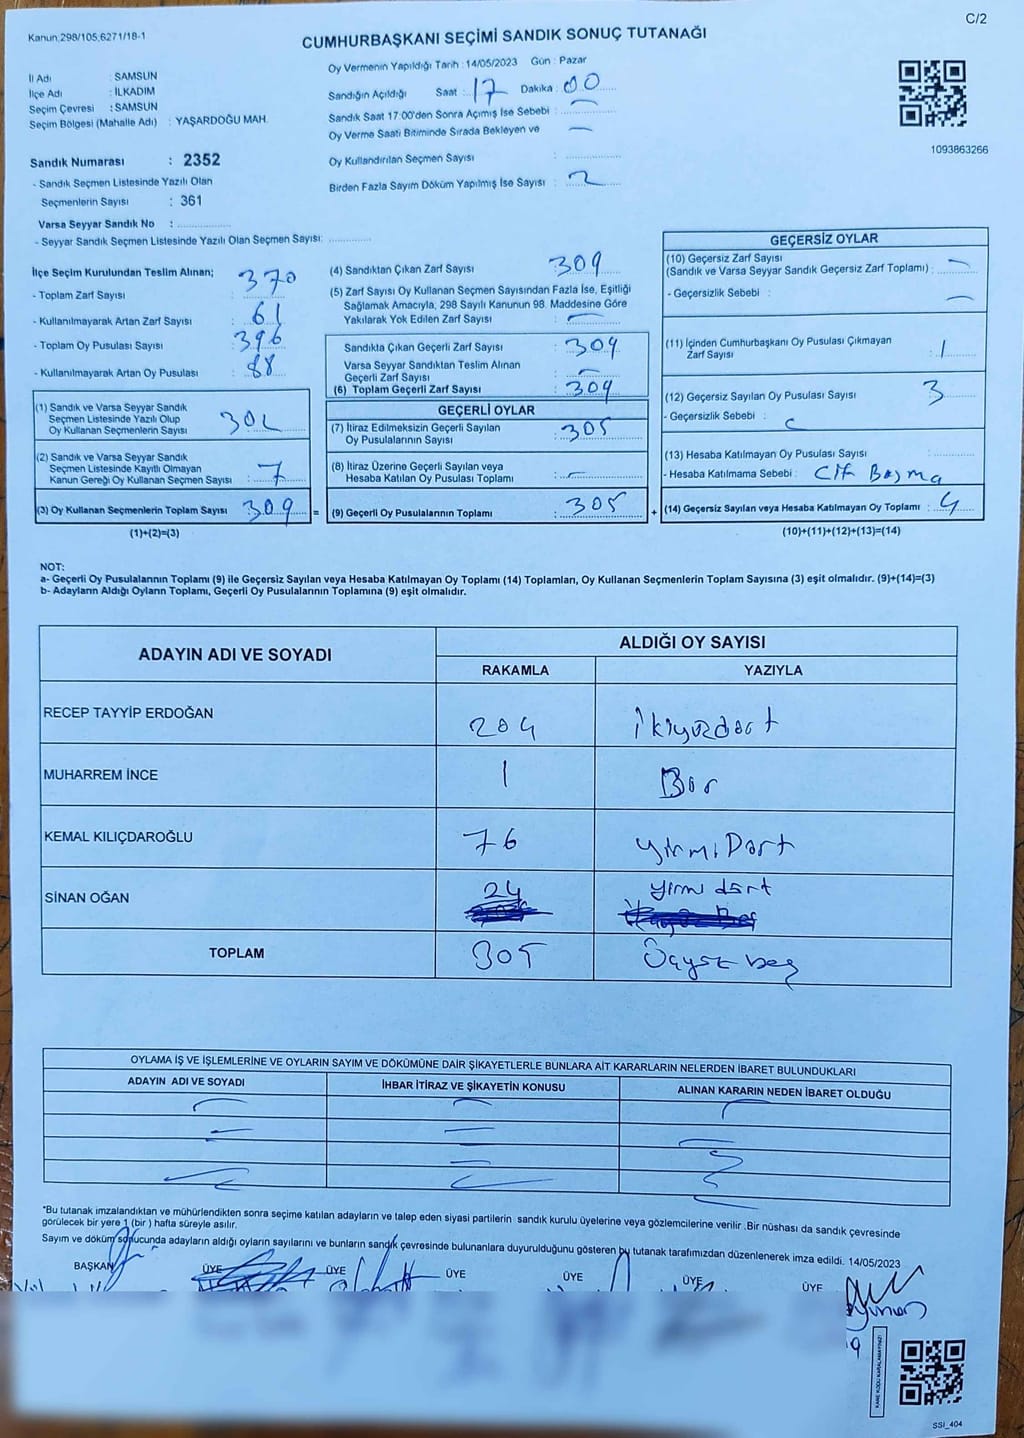 C/2
Kanun,298/105,6271/18-1
CUMHURBAŞKANI SEÇİMİ SANDIK SONUÇ TUTANAĞI
İl Adı : SAMSUN
İlçe Adı : İLKADIM
Seçim Çevresi : SAMSUN
Seçim Bölgesi (Mahalle Adı) : YAŞARDOĞU MAH.
Sandık Numarası : 2352
- Sandık Seçmen Listesinde Yazılı Olan
Seçmenlerin Sayısı : 361
Varsa Seyyar Sandık No :
- Seyyar Sandık Seçmen Listesinde Yazılı Olan Seçmen Sayısı:
Oy Vermenin Yapıldığı Tarih : 14/05/2023 Gün : Pazar
Sandığın Açıldığı Saat : 17 Dakika : 00
Sandık Saat 17:00'den Sonra Açımış İse Sebebi : —
Oy Verme Saati Bitiminde Sırada Bekleyen ve —
Oy Kullandırılan Seçmen Sayısı :
Birden Fazla Sayım Döküm Yapılmış İse Sayısı : 2
1093863266
İlçe Seçim Kurulundan Teslim Alınan;
- Toplam Zarf Sayısı : 370
- Kullanılmayarak Artan Zarf Sayısı : 61
- Toplam Oy Pusulası Sayısı : 396
- Kullanılmayarak Artan Oy Pusulası : 88
(1) Sandık ve Varsa Seyyar Sandık
Seçmen Listesinde Yazılı Olup
Oy Kullanan Seçmenlerin Sayısı : 302
(2) Sandık ve Varsa Seyyar Sandık
Seçmen Listesinde Kayıtlı Olmayan
Kanun Gereği Oy Kullanan Seçmen Sayısı : 7
(3) Oy Kullanan Seçmenlerin Toplam Sayısı : 309 =
(1)+(2)=(3)
(4) Sandıktan Çıkan Zarf Sayısı : 309
(5) Zarf Sayısı Oy Kullanan Seçmen Sayısından Fazla İse, Eşitliği
Sağlamak Amacıyla, 298 Sayılı Kanunun 98. Maddesine Göre
Yakılarak Yok Edilen Zarf Sayısı : —
Sandıkta Çıkan Geçerli Zarf Sayısı : 309
Varsa Seyyar Sandıktan Teslim Alınan
Geçerli Zarf Sayısı : —
(6) Toplam Geçerli Zarf Sayısı : 309
GEÇERLİ OYLAR
(7) İtiraz Edilmeksizin Geçerli Sayılan
Oy Pusulalarının Sayısı : 305
(8) İtiraz Üzerine Geçerli Sayılan veya
Hesaba Katılan Oy Pusulası Toplamı : —
(9) Geçerli Oy Pusulalarının Toplamı : 305 +
GEÇERSİZ OYLAR
(10) Geçersiz Zarf Sayısı
(Sandık ve Varsa Seyyar Sandık Geçersiz Zarf Toplamı) : —
- Geçersizlik Sebebi : —
(11) İçinden Cumhurbaşkanı Oy Pusulası Çıkmayan
Zarf Sayısı : 1
(12) Geçersiz Sayılan Oy Pusulası Sayısı : 3
- Geçersizlik Sebebi :
(13) Hesaba Katılmayan Oy Pusulası Sayısı :
- Hesaba Katılmama Sebebi : Cift Basma
(14) Geçersiz Sayılan veya Hesaba Katılmayan Oy Toplamı : 4
(10)+(11)+(12)+(13)=(14)
NOT:
a- Geçerli Oy Pusulalarının Toplamı (9) ile Geçersiz Sayılan veya Hesaba Katılmayan Oy Toplamı (14) Toplamları, Oy Kullanan Seçmenlerin Toplam Sayısına (3) eşit olmalıdır. (9)+(14)=(3)
b- Adayların Aldığı Oyların Toplamı, Geçerli Oy Pusulalarının Toplamına (9) eşit olmalıdır.
ADAYIN ADI VE SOYADI ALDIĞI OY SAYISI
RAKAMLA YAZIYLA
RECEP TAYYİP ERDOĞAN 204 ikiyüzdört
MUHARREM İNCE 1 Bir
KEMAL KILIÇDAROĞLU 76 yirmi Dört
SİNAN OĞAN 24 yirmi dört
TOPLAM 305 Üçyüz beş
OYLAMA İŞ VE İŞLEMLERİNE VE OYLARIN SAYIM VE DÖKÜMÜNE DAİR ŞİKAYETLERLE BUNLARA AİT KARARLARIN NELERDEN İBARET BULUNDUKLARI
ADAYIN ADI VE SOYADI İHBAR İTİRAZ VE ŞİKAYETİN KONUSU ALINAN KARARIN NEDEN İBARET OLDUĞU
*Bu tutanak imzalandıktan ve mühürlendikten sonra seçime katılan adayların ve talep eden siyasi partilerin sandık kurulu üyelerine veya gözlemcilerine verilir .Bir nüshası da sandık çevresinde
görülecek bir yere 1 (bir ) hafta süreyle asılır.
Sayım ve döküm sonucunda adayların aldığı oyların sayılarını ve bunların sandık çevresinde bulunanlara duyurulduğunu gösteren bu tutanak tarafımızdan düzenlenerek imza edildi. 14/05/2023
BAŞKAN ÜYE ÜYE ÜYE ÜYE ÜYE ÜYE
SSİ_404